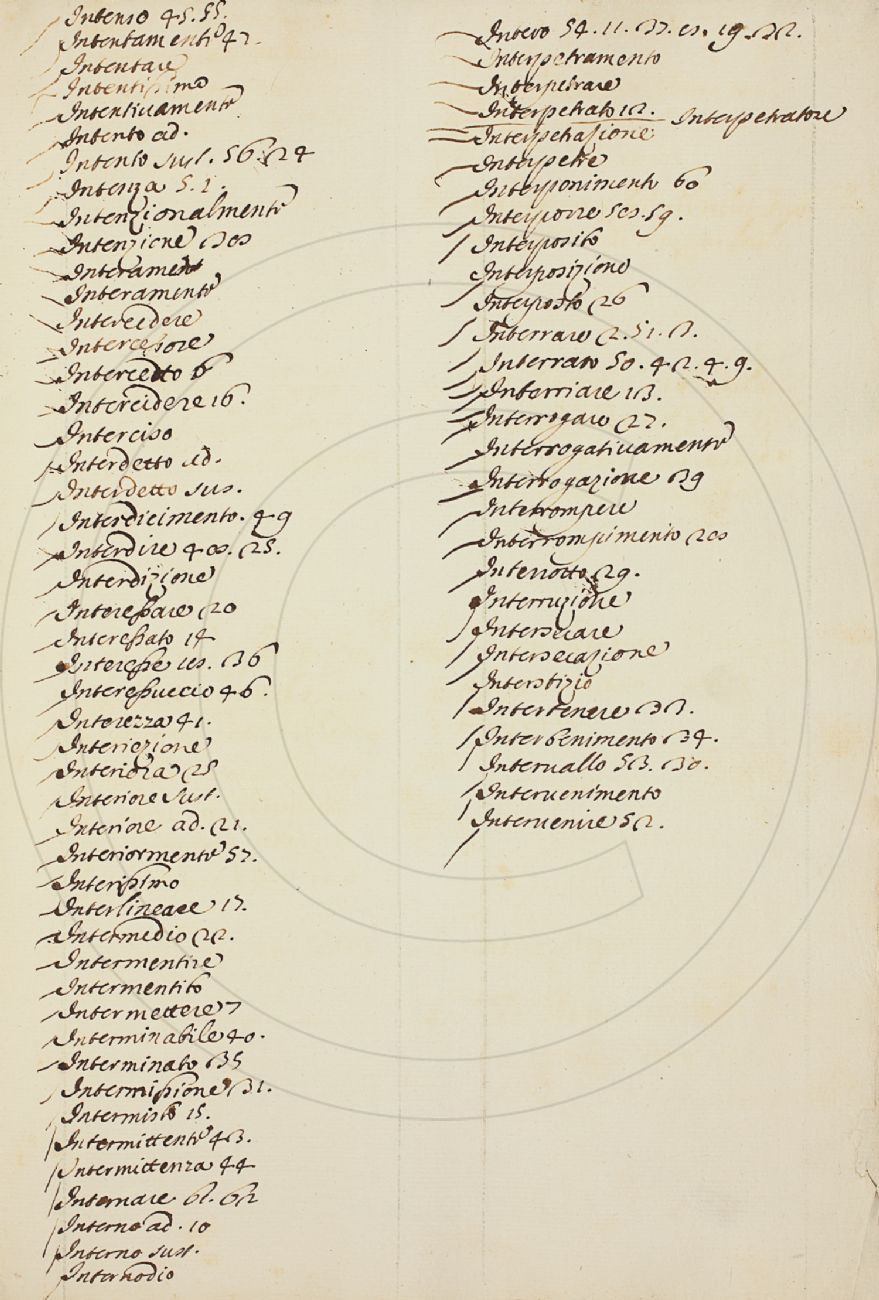 Intenso 45. 55.
Intentamente 47.
Intentare
Intentissimo
Intentivamente
Intento ad.
Intento sust. 56. 24
Intenza 5. 1.
Intenzionalmente
Intenzione
Interamente
Interamente
Intercedere
Intercessore
Intercetto 6
Intercidere 16.
Interciso
Interdetto ad.
Interdetto sus.
Interdicimento. 49
Interdire 25.
Interdizione
Interessare 20
Interessato 14
Interesse 36
Interessuccio 46.
Interezza 41.
Interiezione
Interiora 25
Interiore sust.
Interiore ad. 21.
Interiormente 57.
Interissimo
Interlineare 17.
Intermedio 22.
Intermentire
Intermentito
Intermettere 7
Interminabile 40.
Interminato 35
Intermissione 31.
Intermisto 15.
Intermittente 43.
Intermittenza 44
Internare 61. 62
Interno ad. 10
Interno sust.
Internodio
Intero 54. 11. 37. 19. 32.
Interpetramento
Interpetrare
Interpetrato 12. Interpetratore
Interpetrazione
Interpetre
Interponimento 60
Interporre 59.
Interposito
Interposizione
Interposto 26
Interrare 2. 51. 3.
Interrato 50. 42. 4. 9.
Interriare 13.
Interrogare 27.
Interrogativamente
Interrogazione 39
Interrompere
Interrompimento
Interrotto 29.
Interruzione
Intersecare
Intersecazione
Interstizio
Intertenere 33.
Intertenimento 34.
Intervallo 53. 30.
Intervenimento
Intervenire 52.